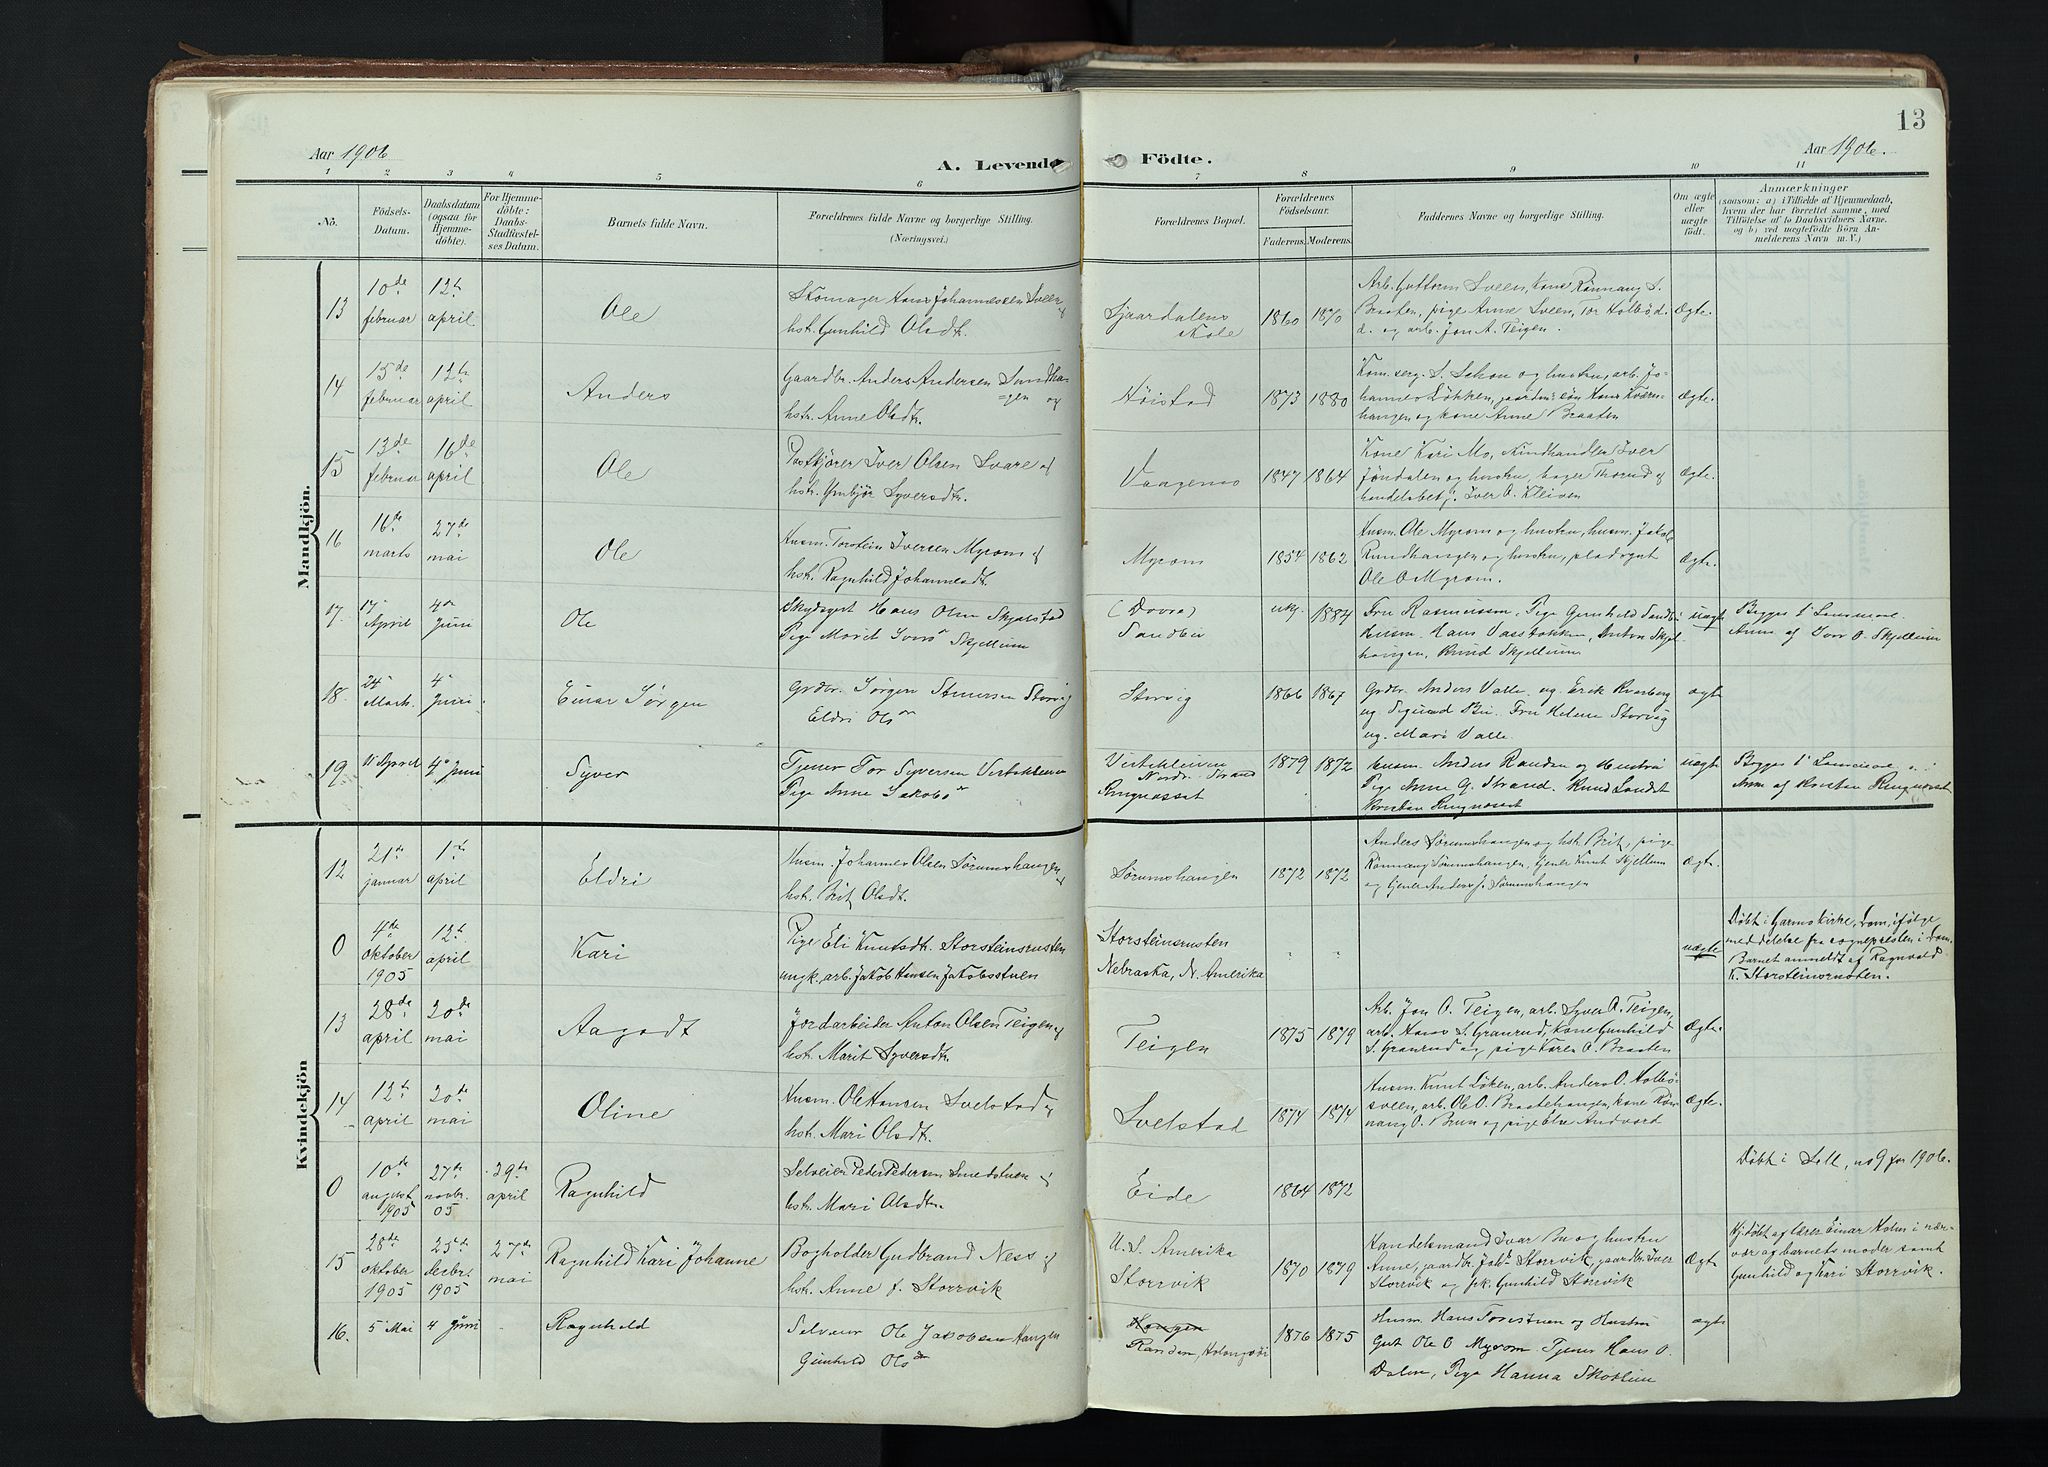 13
Aar 1906
A. Levende Födte.
Aar 1906.
1 2 3 4 5 6 7 8 9 10 11
No.
Födsels-
Datum.
Daabsdatum
(ogsaa for
Hjemme-
döbte).
For Hjemme-
döbte:
Daabs-
Stadfæstel-
ses Datum.
Barnets fulde Navn.
Forældrenes fulde Navne og borgerlige Stilling.
(Næringsvei.)
Forældrenes Bopæl.
Forældrenes
Födselsaar.
Faderens. Moderens.
Faddernes Navne og borgerlige Stilling.
Om ægte
eller
uægte
födt.
Anmærkninger
(saasom: a) i Tilfælde af Hjemmedaab,
hvem der har forrettet samme, med
Tilföielse af to Daabsvidners Navne.
og b) ved uægtefödte Börn An-
melderens Navn m. V.)
Mandkjön.
13
10de
februar
12te
april
Ole
Skomager Hans Johannessen Sveen og
hst. Gunhild Olsdt.
Sjaardalens
Skole
1860 1870
Arb. Guttorm Sveen, kone Rønnaug S.
Braaten, pige Anne Sveen, Tor Holbø d.
d. og arb. Jon A. Teigen.
Ægte.
14
15de
februar
12te
april
Anders
Gaardbr. Anders Andersen Sundha-
=gen og
hst. Anne Olsdt.
Høistad
1873 1880
Kom. serg. S. Schou og hustru, arb. Jo-
hannes Løkken, gaardm. søn Hans Kværn-
haugen og kone Anne Braaten
ægte.
15
13de
februar
16de
april
Ole
Postkjører Iver Olsen Svare og
hst. Ymbjør Syversdt.
Vaagemo
1847 1864
Kone Kari Mo, Skindhandler Iver
Jøndalen og hustru, bager Thorud og
handelsbetj. Iver O. Kleiven
Ægte.
16
16de
marts
27de
mai
Ole
Husm. Torstein Iversen Myrom og
hst. Ragnhild Johannesdt.
Myrom
1854 1862
Husm. Ole Myrom og hustru, husm. Jakob
Sundhaugen og hustru, pladsgut
Ole O Myrom.
Ægte.
17
17
April
4de
Juni
Ole
Skydsgut Hans Olsen Skjelstad
Pige Marit Ivers dr Skjellum
(Dovre)
Sandbu
ukj. 1884
Fru Rasmussen. Pige Gunhild Sandbu
Husm. Hans Vasstokken, Anton Skjel
haugen, Knud Skjellum
uægte
Begges 1ste Leiermaal.
Anm. af Iver O. Skjellum
18.
24
Marts.
4
Juni.
Einar Jørgen
Grdbr. Jørgen Steinersen Storvig
Eldri Ols dr
Storvig
1866 1867
Grdbr. Anders Valle. ug. Erik Kvarberg
ug. Sigurd Bu. Fru Helene Storvig
ug. Mari Valle.
ægte
19.
11 April
4de Juni
Syver
Tjener Tor Syversen Veslekleiven
Pige Anne Jakobs dr
Veslekleiven
Nordr. Strand
Ringnesset
1879 1872
Husm. Anders Randen og Hustru
Pige Anne G. Strand. Knud Landet
Kristian Ringnesset
uægte
Begges 1ste Leiermaal
Anm af Kristian Ringnesset
Kvindekjön
12
21de
januar
1te
april
Eldri
Husm. Johannes Olsen Sørumshaugen og
hst. Brit Olsdt.
Sørumshaugen
1872 1872
Anders Sørumshaugen og hst. Brit, pige
Rønnaug Sørumshaugen, tjener Knut Skjellum
og tjener Anders J. Sørumshaugen
Ægte.
0
4de
oktober
1905
12te
april
Kari
Pige Eli Knutsdt. Storsteinsrusten
ungk. arb. Jakob Hansen Jakobsstuen
Storsteinsrusten
Nebraska, N. Amerika
uægte
Døbt i Garmo kirke, Lom, ifølge
meddelelse fra sognepresten i Lom.
Barnet anmeldt af Ragnvald
K. Storsteinsrusten.
13
28de
april
20de
mai
Aagodt
Jordarbeider Anton Olsen Teigen og
hst. Marit Syversdt.
Teigen
1875 1879
Arb. Jon O. Teigen, arb. Syver O. Teigen,
arb. Hans S. Granrud, kone Gunhild
S. Granrud og pige Karen O. Braaten
Ægte.
14
12te
april
20de
mai
Oline
Husm. Ole Hansen Svelstad og
hst. Mari Olsdt.
Svelstad
1874 1874
Husm. Knut Løken, arb. Anders O. Holbø-
sveen, arb. Ole O. Braatehaugen, kone Røn-
naug O. Brun og pige Else Andvord
Ægte.
0
10de
august
1905
27de
novbr.
05
29te
april
Ragnhild
Selveier Peder Pedersen Smedstuen og
hst. Mari Olsdtr.
Eide
1864 1872
Døbt i Sell, no 9 for 1906.
15
28de
oktober
1905
25de
decbr.
1905
27de
mai
Ragnhild Kari Johanne
Bogholder Gudbrand Ness og
hst. Anne f. Storvik
U. S. Amerika
Storrvik
1870 1879
Handelsmand Ivar Bu og hustru
Anne, gaardbr. Joh. Storrvik, gaardbr. Iver
Storrvik og pk. Gunhild Storrvik
Ægte
Hj.døbt af lærer Einar Holm i nær-
vær af barnets moder samt
Gunhild og Kari Storrvik.
16.
5 Mai
4 Juni
Ragnhild
Selveier Ole Jakobsen Haugen
Gunhild Ols dr
Haugen
Randen,
1876 1875
Husm. Hans Torsstuen og Hustru
Gut Ole O Myrom. Tjener Hans O.
Dalen, Pige Hanna Skotlien
ægte